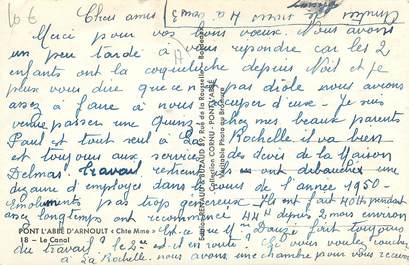 Chers amis
Merci pour vos bons vœux. Nous avons
un peu tardé à vous répondre car les 2
enfants ont la coqueluche depuis Noël et je
peux vous dire que ce n'est pas drôle nous avions
assez à faire à nous occuper d'eux - Je suis
venue passer une quinz chez mes beaux parents
Paul est tout seul à La Rochelle il va bien
est toujours aux services des devis de la Maison
Delmas. Travail restreint ils ont débauché une
dizaine d'employés dans le cours de l'année 1950 -
Emoluments pas trop généreux - Ils ont fait 40h pendant
assez longtemps ont recommencé 44H depuis 2 mois environ
PONT L'ABBÉ D'ARNOULT « Chte Mme »
18 - Le Canal
Est-ce que Mr fait toujours
du travail ? le 2ème est-il en route ? Si vous voulez
à La Rochelle. nous avons une chambre pour vous recevoir
Edition RENAUD & BUZAUD 87, Rue de la Rousselle - Bordeaux
Collection FOURNIL - PONT-L'ABBÉ
Véritable Photo au Bromure